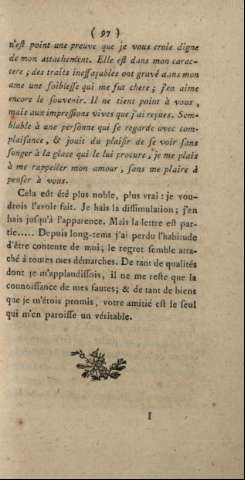 ( 97 )
n'est point une preuve que je vous crois digne
de mon attachement. Elle est dans mon carac-
tere ; des traits ineffaçables ont gravé dans mon
ame une foiblesse qui me fut chere ; j'en aime
encore le souvenir. Il ne tient point à vous,
mais aux impressions vives que j'ai reçues. Sem-
blable à une personne qui se regarde avec com-
plaisance, & jouit du plaisir de se voir sans
songer à la glace qui le lui procure, je me plais
à me rappeller mon amour, sans me plaire à
penser à vous.
Cela eût été plus noble, plus vrai : je vou-
drois l'avoir fait. Je hais la dissimulation ; j'en
hais jusqu'à l'apparence. Mais la lettre est par-
tie..... Depuis long-tems j'ai perdu l'habitude
d'être contente de moi ; le regret semble atta-
ché à toutes mes démarches. De tant de qualités
dont je m'applaudissois, il ne me reste que la
connoissance de mes fautes ; & de tant de biens
que je m'étois promis, votre amitié est le seul
qui m'en paroisse un véritable.
I